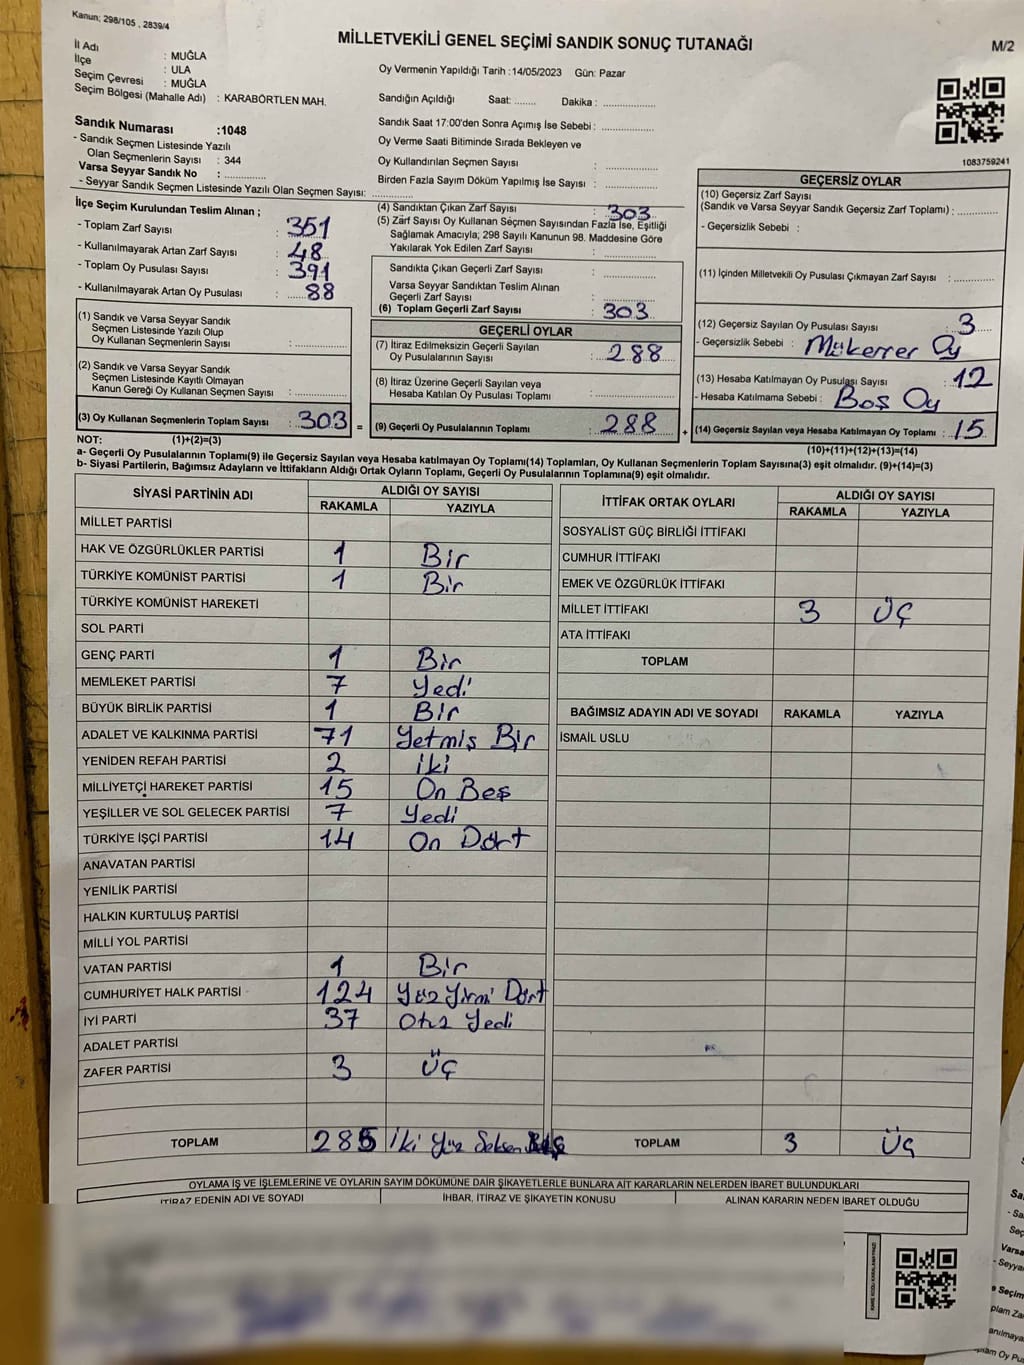 Kanun; 298/105 , 2839/4
MİLLETVEKİLİ GENEL SEÇİMİ SANDIK SONUÇ TUTANAĞI
M/2
İl Adı : MUĞLA
İlçe : ULA
Seçim Çevresi : MUĞLA
Seçim Bölgesi (Mahalle Adı) : KARABÖRTLEN MAH.
Sandık Numarası :1048
- Sandık Seçmen Listesinde Yazılı
Olan Seçmenlerin Sayısı : 344
Varsa Seyyar Sandık No : ............
- Seyyar Sandık Seçmen Listesinde Yazılı Olan Seçmen Sayısı: ............
Oy Vermenin Yapıldığı Tarih :14/05/2023 Gün: Pazar
Sandığın Açıldığı Saat: ....... Dakika : ................
Sandık Saat 17:00'den Sonra Açımış İse Sebebi : ................
Oy Verme Saati Bitiminde Sırada Bekleyen ve
Oy Kullandırılan Seçmen Sayısı : ................
Birden Fazla Sayım Döküm Yapılmış İse Sayısı : ................
1083759241
İlçe Seçim Kurulundan Teslim Alınan ;
- Toplam Zarf Sayısı : 351
- Kullanılmayarak Artan Zarf Sayısı : 48
- Toplam Oy Pusulası Sayısı : 391
- Kullanılmayarak Artan Oy Pusulası : 88
(1) Sandık ve Varsa Seyyar Sandık
Seçmen Listesinde Yazılı Olup
Oy Kullanan Seçmenlerin Sayısı : ................
(2) Sandık ve Varsa Seyyar Sandık
Seçmen Listesinde Kayıtlı Olmayan
Kanun Gereği Oy Kullanan Seçmen Sayısı : ................
(3) Oy Kullanan Seçmenlerin Toplam Sayısı : 303 =
(4) Sandıktan Çıkan Zarf Sayısı : 303
(5) Zarf Sayısı Oy Kullanan Seçmen Sayısından Fazla İse, Eşitliği
Sağlamak Amacıyla; 298 Sayılı Kanunun 98. Maddesine Göre
Yakılarak Yok Edilen Zarf Sayısı : ................
Sandıkta Çıkan Geçerli Zarf Sayısı : ................
Varsa Seyyar Sandıktan Teslim Alınan
Geçerli Zarf Sayısı : ................
(6) Toplam Geçerli Zarf Sayısı : 303
GEÇERLİ OYLAR
(7) İtiraz Edilmeksizin Geçerli Sayılan
Oy Pusulalarının Sayısı : 288
(8) İtiraz Üzerine Geçerli Sayılan veya
Hesaba Katılan Oy Pusulası Toplamı : ................
(9) Geçerli Oy Pusulalarının Toplamı : 288 +
GEÇERSİZ OYLAR
(10) Geçersiz Zarf Sayısı
(Sandık ve Varsa Seyyar Sandık Geçersiz Zarf Toplamı) : ............
- Geçersizlik Sebebi :
(11) İçinden Milletvekili Oy Pusulası Çıkmayan Zarf Sayısı : ............
(12) Geçersiz Sayılan Oy Pusulası Sayısı : 3
- Geçersizlik Sebebi : Mükerrer Oy
(13) Hesaba Katılmayan Oy Pusulası Sayısı : 12
- Hesaba Katılmama Sebebi : Boş Oy
(14) Geçersiz Sayılan veya Hesaba Katılmayan Oy Toplamı : 15
NOT: (1)+(2)=(3)
(10)+(11)+(12)+(13)=(14)
a- Geçerli Oy Pusulalarının Toplamı(9) ile Geçersiz Sayılan veya Hesaba katılmayan Oy Toplamı(14) Toplamları, Oy Kullanan Seçmenlerin Toplam Sayısına(3) eşit olmalıdır. (9)+(14)=(3)
b- Siyasi Partilerin, Bağımsız Adayların ve İttifakların Aldığı Ortak Oyların Toplamı, Geçerli Oy Pusulalarının Toplamına(9) eşit olmalıdır.
SİYASİ PARTİNİN ADI ALDIĞI OY SAYISI
RAKAMLA YAZIYLA
MİLLET PARTİSİ
HAK VE ÖZGÜRLÜKLER PARTİSİ 1 Bir
TÜRKİYE KOMÜNİST PARTİSİ 1 Bir
TÜRKİYE KOMÜNİST HAREKETİ
SOL PARTİ
GENÇ PARTİ 1 Bir
MEMLEKET PARTİSİ 7 Yedi
BÜYÜK BİRLİK PARTİSİ 1 Bir
ADALET VE KALKINMA PARTİSİ 71 Yetmiş Bir
YENİDEN REFAH PARTİSİ 2 İki
MİLLİYETÇİ HAREKET PARTİSİ 15 On Beş
YEŞİLLER VE SOL GELECEK PARTİSİ 7 Yedi
TÜRKİYE İŞÇİ PARTİSİ 14 On Dört
ANAVATAN PARTİSİ
YENİLİK PARTİSİ
HALKIN KURTULUŞ PARTİSİ
MİLLİ YOL PARTİSİ
VATAN PARTİSİ 1 Bir
CUMHURİYET HALK PARTİSİ 124 Yüz Yirmi Dört
İYİ PARTİ 37 Otuz Yedi
ADALET PARTİSİ
ZAFER PARTİSİ 3 Üç
TOPLAM 285 İki Yüz Seksen Beş
İTTİFAK ORTAK OYLARI ALDIĞI OY SAYISI
RAKAMLA YAZIYLA
SOSYALİST GÜÇ BİRLİĞİ İTTİFAKI
CUMHUR İTTİFAKI
EMEK VE ÖZGÜRLÜK İTTİFAKI
MİLLET İTTİFAKI 3 Üç
ATA İTTİFAKI
TOPLAM
BAĞIMSIZ ADAYIN ADI VE SOYADI RAKAMLA YAZIYLA
İSMAİL USLU
TOPLAM 3 Üç
OYLAMA İŞ VE İŞLEMLERİNE VE OYLARIN SAYIM DÖKÜMÜNE DAİR ŞİKAYETLERLE BUNLARA AİT KARARLARIN NELERDEN İBARET BULUNDUKLARI
İTİRAZ EDENİN ADI VE SOYADI İHBAR, İTİRAZ VE ŞİKAYETİN KONUSU ALINAN KARARIN NEDEN İBARET OLDUĞU